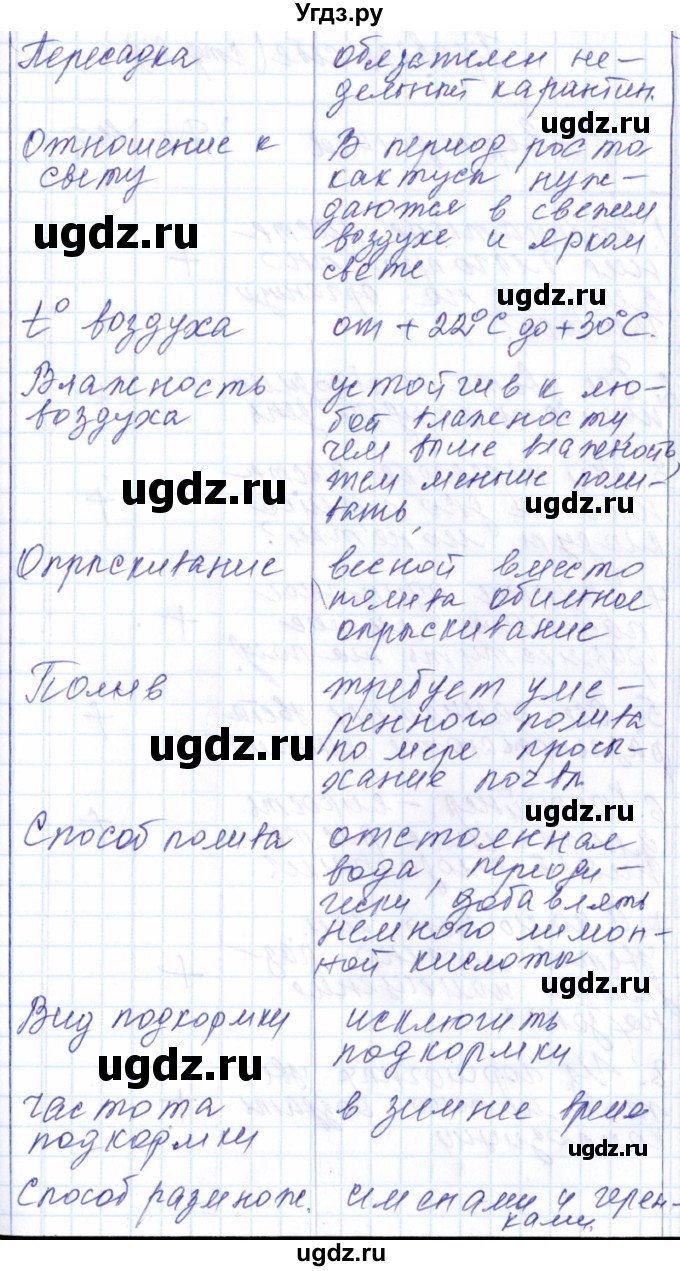 Угдз.ру
Пересадка
обязателен не-
дельный карантин.
ugdz.ru
Отношение к
свету
В период роста
кактусы нуж-
даются в свежем
воздухе и ярком
свете
ugdz.ru
ugdz.ru
t° воздуха
от +22°С до +30°С.
Влажность
воздуха
устойчив к лю-
бой влажности,
чем выше влажность,
тем меньше поли-
вать,
ugdz.ru
ugdz.ru
Опрыскивание
весной вместо
полива обильное
опрыскивание
Полив
требует уме-
ренного полива
по мере просы-
хание почвы
ugdz.ru
ugdz.ru
Способ полива
отстоянная
вода, периоди-
чески добавлять
немного лимон-
ной кислоты
ugdz.ru
Вид подкормки
исключить
подкормки
ugdz.ru
частота
подкормки
в зимнее время
ugdz.ru
Способ размнож.
семенами и черен-
ками.
ugdz.ru